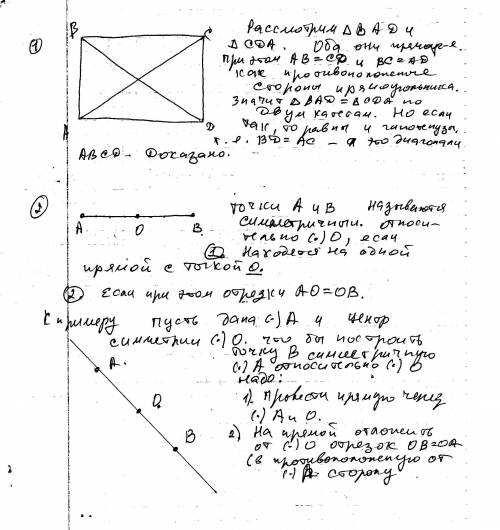 ① B C Рассмотрим △BAD и
△CDA. Оба они прямоуг-е.
При этом AB=CD и BC=AD
как противоположные
стороны прямоугольника.
Значит △BAD=△CDA по
двум катетам. Но если
A D так, то равны и гипотенузы
т. е. BD=AC – а это диагонали
ABCD. Доказано.
② A O B точки A и B называются
симметричными относи-
тельно (·) O, если
① Находятся на одной
прямой с точкой O.
② Если при этом отрезки AO=OB.
К примеру пусть дана (·) A и центр
симметрии (·) O. что бы построить
точку B симметричную
A. (·) A относительно (·) O
надо:
O 1) Провести прямую через
(·) A и O.
B 2) На прямой отложить
от (·) O отрезок OB=OA
(в противоположную от
(·) A сторону